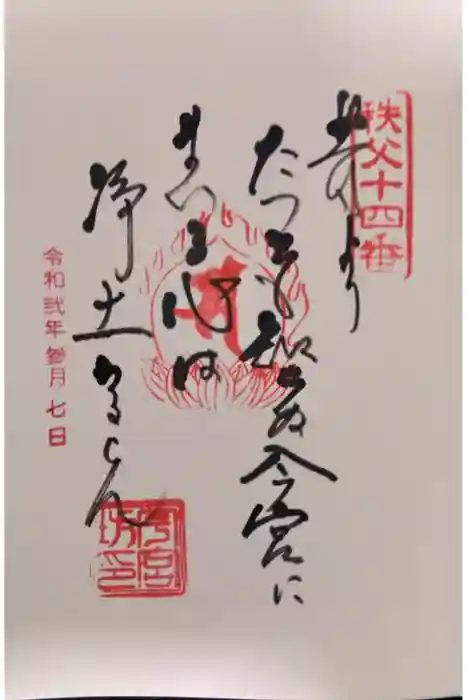 秩父十四番
昔より
たつとも知らぬ今宮に
まいる心は
浄土なるらん
令和弐年参月七日
今宮坊印